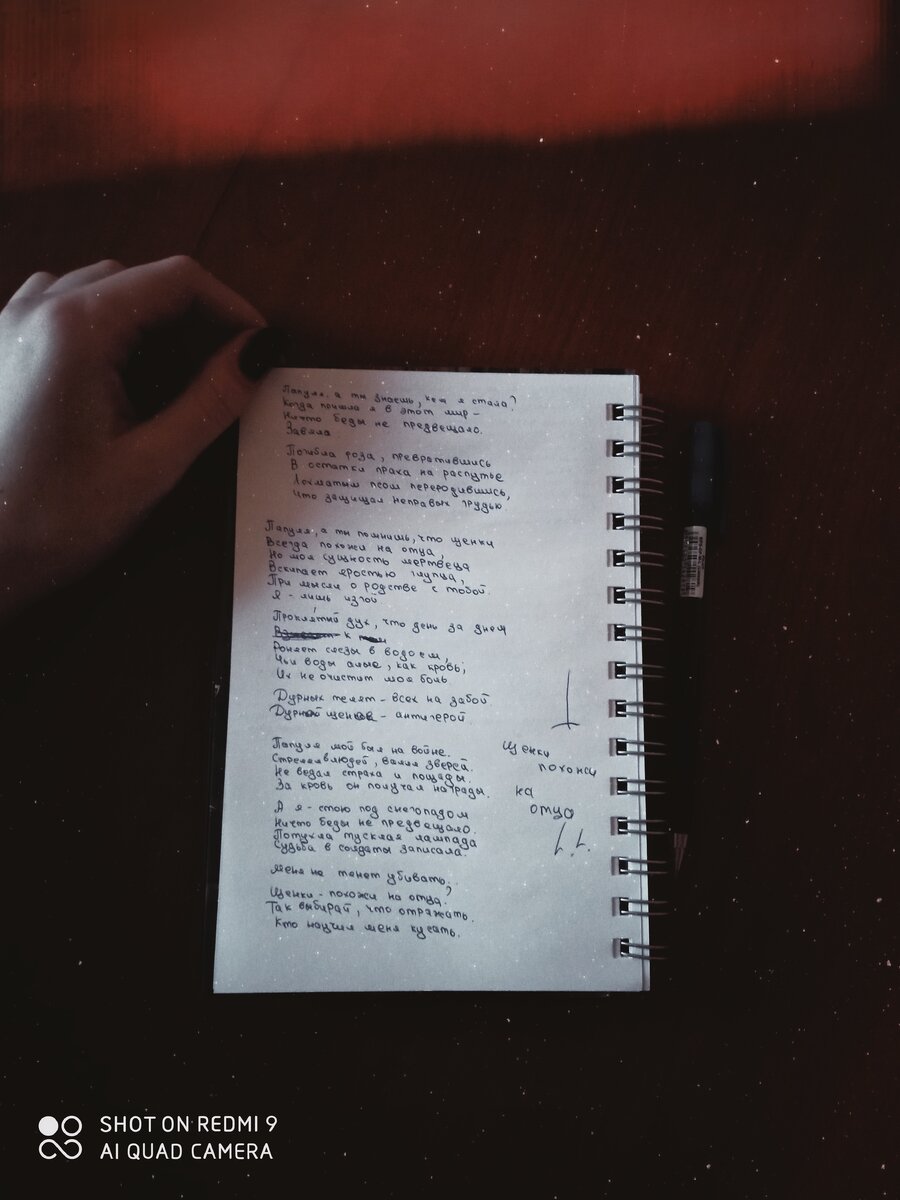 Папуля, а ты знаешь, кем я стала?
Когда пришла я в этот мир -
Ничто беды не предвещало.
Завяла
Погибла роза, превратившись
В остатки праха на распутье
Лохматым псом переродившись,
Что защищал неправых грудью
Папуля, а ты помнишь, что щенки
Всегда похожи на отца,
Но моя сущность мертвеца
Вскипает яростью глупца,
При мысли о родстве с тобой.
Я - лишь изгой
Проклятий дух, что день за днем
к
Роняет слезы в водоем,
Чьи воды алые, как кровь;
Их не очистит моя боль.
Дурных телят - всех на забой
Дурной щенок - антигерой
Папуля мой был на войне.
Стрелял людей, валил зверей.
Не ведал страха и пощады.
За кровь он получал награды.
А я - стою под снегопадом
Ничто беды не предвещало.
Потухла тусклая лампада
Судьба в солдаты записала.
Меня не тянет убивать,
Щенки - похожи на отца?
Так выбирай, что отражать.
Кто научил меня кусать.
Щенки
похожи
на
отца
SHOT ON REDMI 9
AI QUAD CAMERA